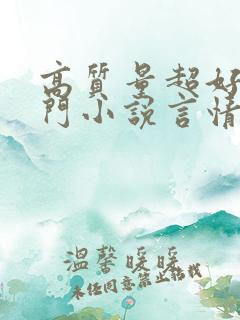 高質量超好
門小說言情
溫馨暖暖
未经同意禁止转载